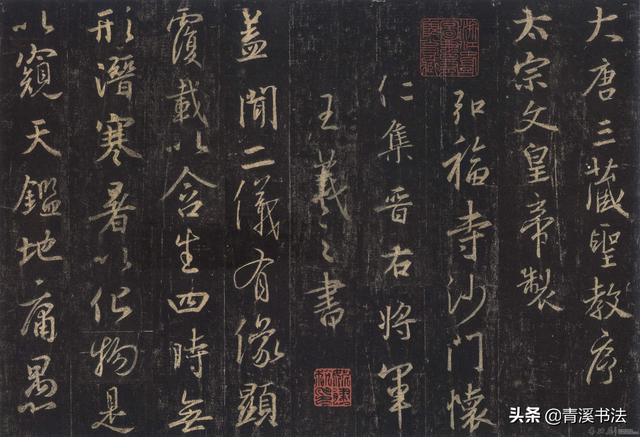 大唐三藏聖教序
太宗文皇帝製
弘福寺沙門懷
仁集晋右將軍
王羲之書
蓋聞二儀有像顯
覆載以含生四時無
形潛寒暑以化物是
以窺天鑑地庸愚
头条@青溪书法